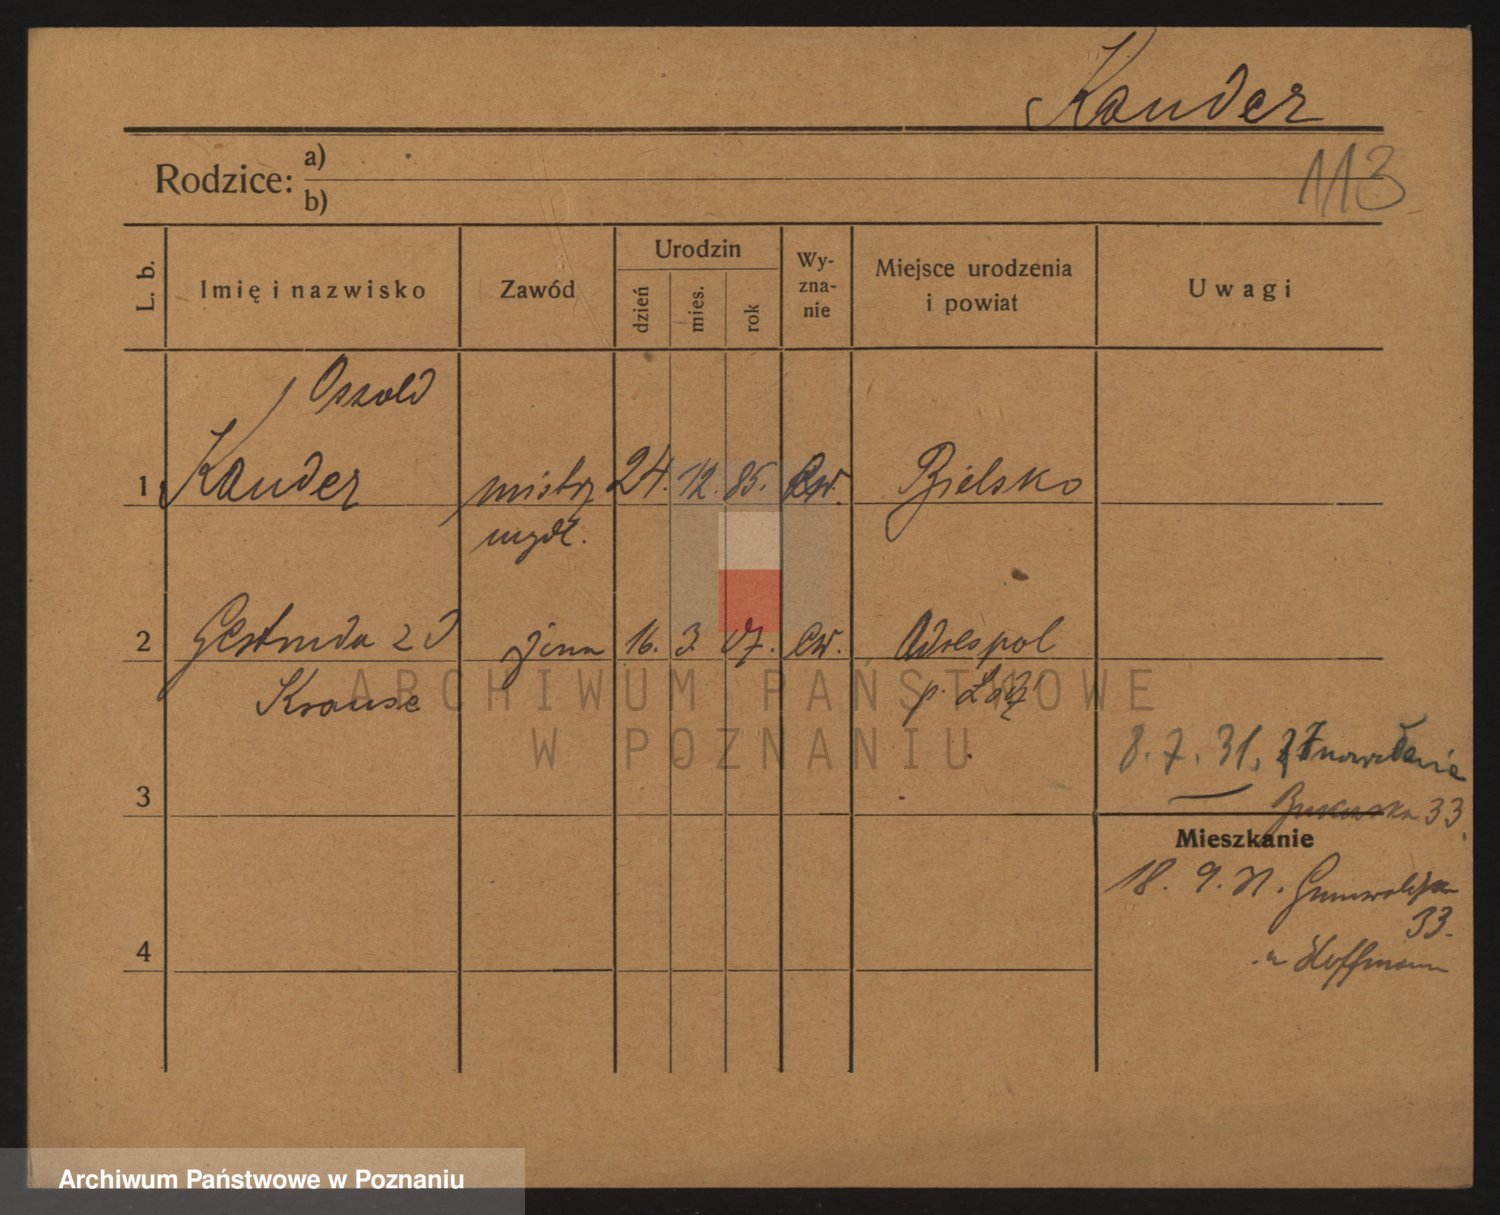 Kauder
113
Rodzice: a)
b)
L. b.
Imię i nazwisko
Zawód
Urodzin
dzień
mies.
rok
Wy-
zna-
nie
Miejsce urodzenia
i powiat
Uwagi
Oswald
1 Kauder mistrz 24. 12. 85. ew. Bielsko
mydł.
2 Gertruda z d żona 16. 3. 07. ew. Adrespol
Krause p. Łódź
ARCHIWUM PAŃSTWOWE
W POZNANIU
8. 7. 31.
3
33.
Mieszkanie
18. 9. 31. Grunwaldzka
33.
Hoffmann
4
Archiwum Państwowe w Poznaniu